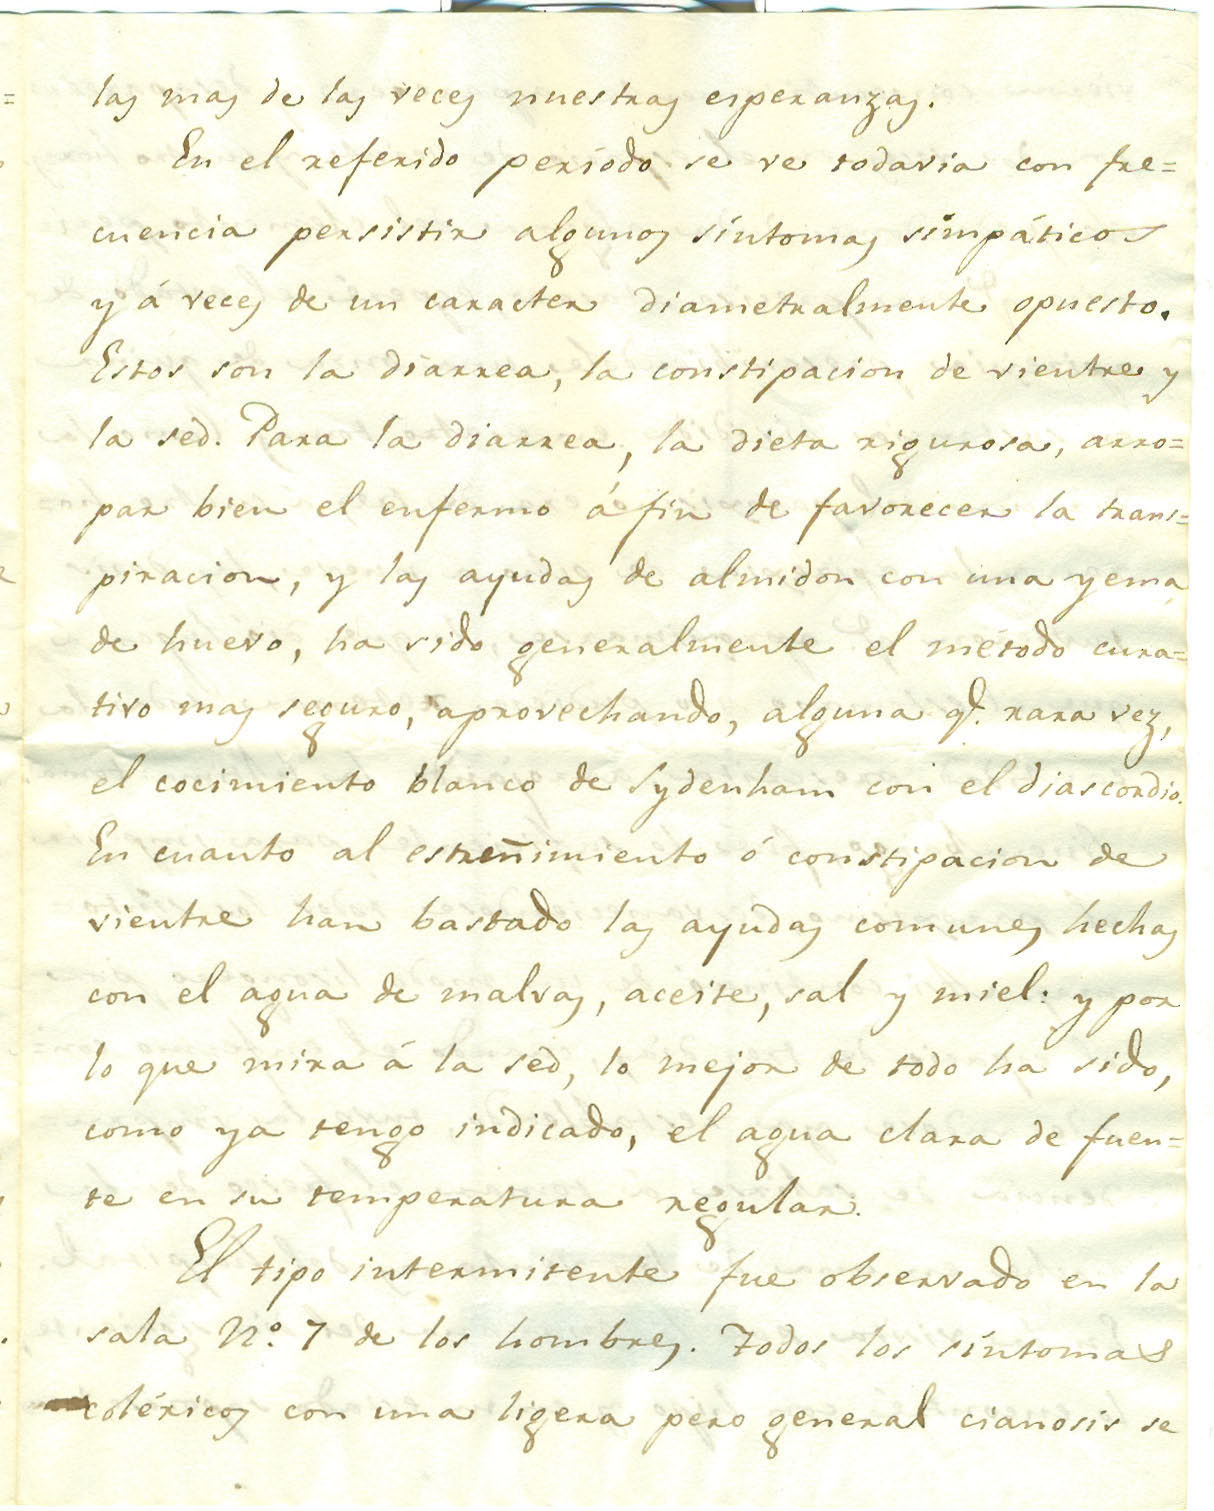 las mas de las veces nuestras esperanzas.
En el referido período se ve todavia con fre=
cuencia persistir algunos síntomas simpáticos
y á veces de un caracter diametralmente opuesto.
Estos son la diarrea, la constipacion de vientre y
la sed. Para la diarrea, la dieta rigurosa, arro=
par bien el enfermo á fin de favorecer la trans=
piracion, y las ayudas de almidon con una yema
de huevo, ha sido generalmente el método cura=
tivo mas seguro, aprovechando, alguna q.e rara vez,
el cocimiento blanco de Sydenham con el diascordio.
En cuanto al estreñimiento ó constipacion de
vientre han bastado las ayudas comunes hechas
con el agua de malvas, aceite, sal y miel: y por
lo que mira á la sed, lo mejor de todo ha sido,
como ya tengo indicado, el agua clara de fuen=
te en su temperatura regular.
El tipo intermitente fue observado en la
sala N.º 7 de los hombres. Todos los síntomas
coléricos con una ligera pero general cianosis se